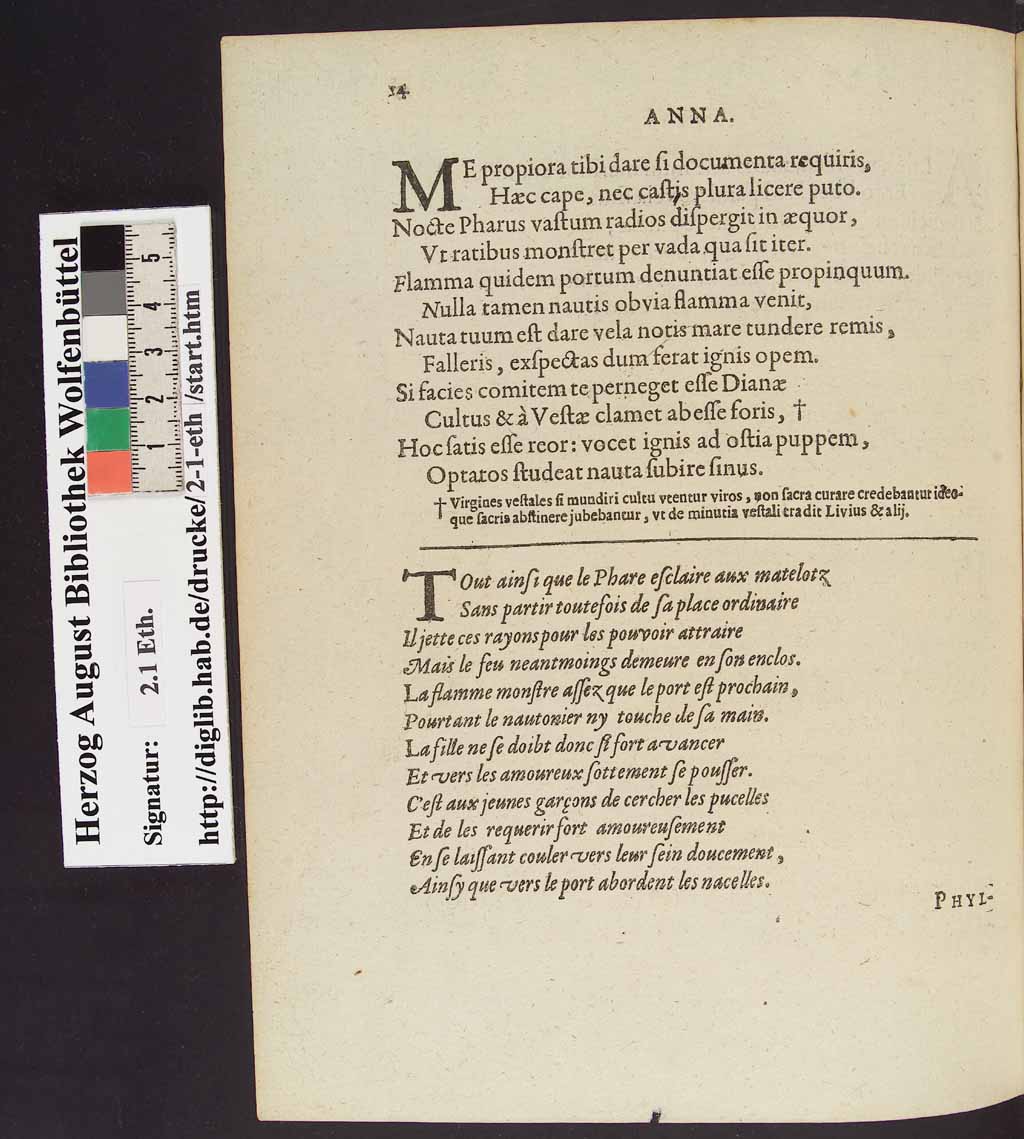 14
ANNA.
ME propiora tibi dare ſi documenta requiris,
Hæc cape, nec caſtis plura licere puto.
Nocte Pharus vaſtum radios diſpergit in æquor,
Vt ratibus monſtret per vada qua ſit iter.
Flamma quidem portum denuntiat eſſe propinquum.
Nulla tamen nautis obvia flamma venit,
Nauta tuum eſt dare vela notis mare tundere remis,
Falleris, exſpectas dum ferat ignis opem.
Si facies comitem te perneget eſſe Dianæ
Cultus & à Veſtæ clamet abeſſe foris, †
Hoc ſatis eſſe reor: vocet ignis ad oſtia puppem,
Optatos ſtudeat nauta ſubire ſinus.
† Virgines veſtales ſi mundiri cultu vtentur viros, non ſacra curare credebantut ideo-
que ſacris abſtinere jubebantur, vt de minutia veſtali tradit Livius & alij.
TOut ainſi que le Phare eſclaire aux matelotz
Sans partir toutefois de ſa place ordinaire
Il jette ces rayons pour les pouvoir attraire
Mais le feu neantmoings demeure en ſon enclos.
La flamme monſtre aſſez que le port eſt prochain,
Pourtant le nautonier ny touche de ſa main.
La fille ne ſe doibt donc ſi fort avancer
Et vers les amoureux ſottement ſe pouſſer.
C'eſt aux jeunes garçons de cercher les pucelles
Et de les requerir fort amoureuſement
En ſe laiſſant couler vers leur ſein doucement,
Ainſy que vers le port abordent les nacelles.
PHYL-
Herzog August Bibliothek Wolfenbüttel
Signatur: 2.1 Eth.
http://diglib.hab.de/drucke/2-1-eth/start.htm
1 2 3 4 5